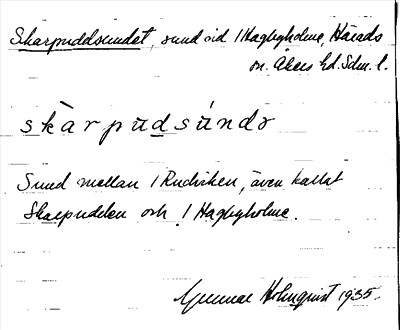 Skarpuddsundet, sund vid / Hagbyholme, Härads
sn. Åkers hd. Sdm. l.
skàrpùdsúndə
Sund mellan / Rudviken, även kallat
Skarpudden och / Hagbyholme.
Gunnar Holmquist 1935.